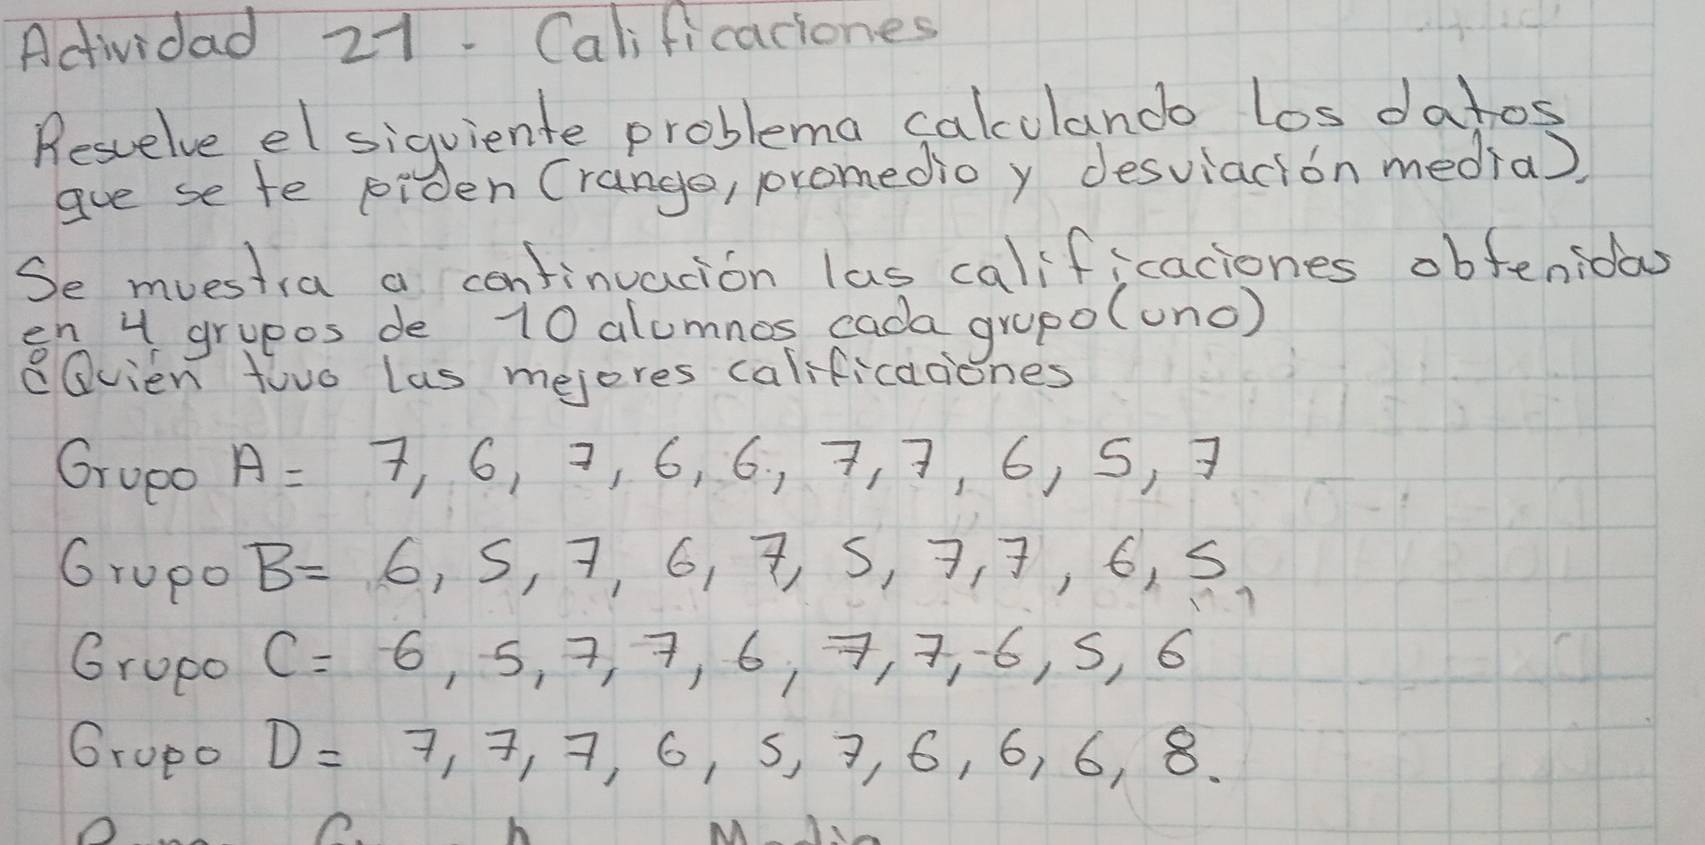 Actividad 21. Calificaciones
Resuelve el siguiente problema calculando los datos
que se te piden (rango, promedio y desviación media).
Se muestra a continuación las calificaciones obtenidas
en 4 grupos de 10 alumnos cada grupo (uno)
¿Quién tuvo las mejores calificaciones
Grupo A = 7, 6, 7, 6, 6, 7, 7, 6, 5, 7
Grupo B = 6, 5, 7, 6, 7, 5, 7, 7, 6, 5,
Grupo C = 6, 5, 7, 7, 6, 7, 7, 6, 5, 6
Grupo D = 7, 7, 7, 6, 5, 7, 6, 6, 6, 8.